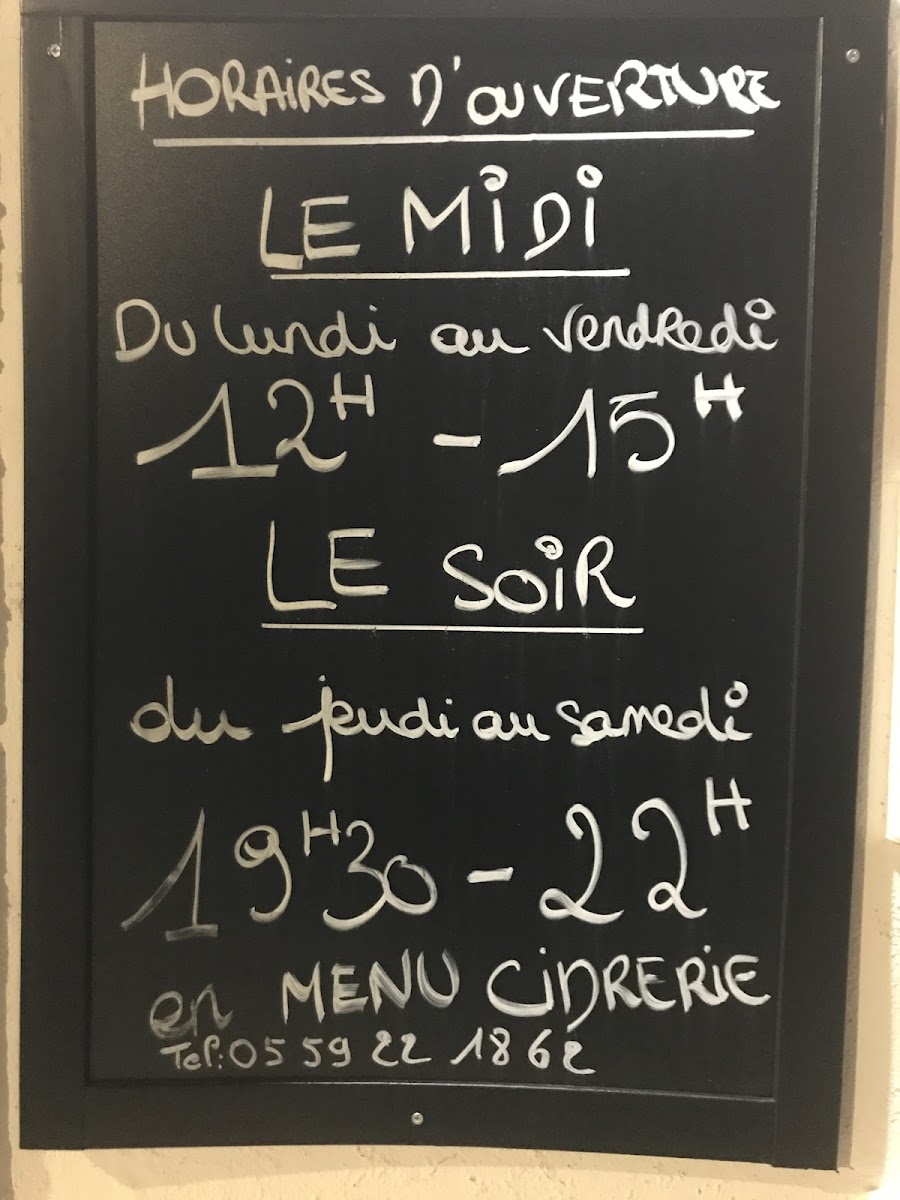 HORAIRES D'OUVERTURE
LE MiDi
Du lundi au vendredi
12H - 15H
LE SOiR
du jeudi au samedi
19H30 - 22H
en MENU CiDRERiE
Tel: 05 59 22 18 62